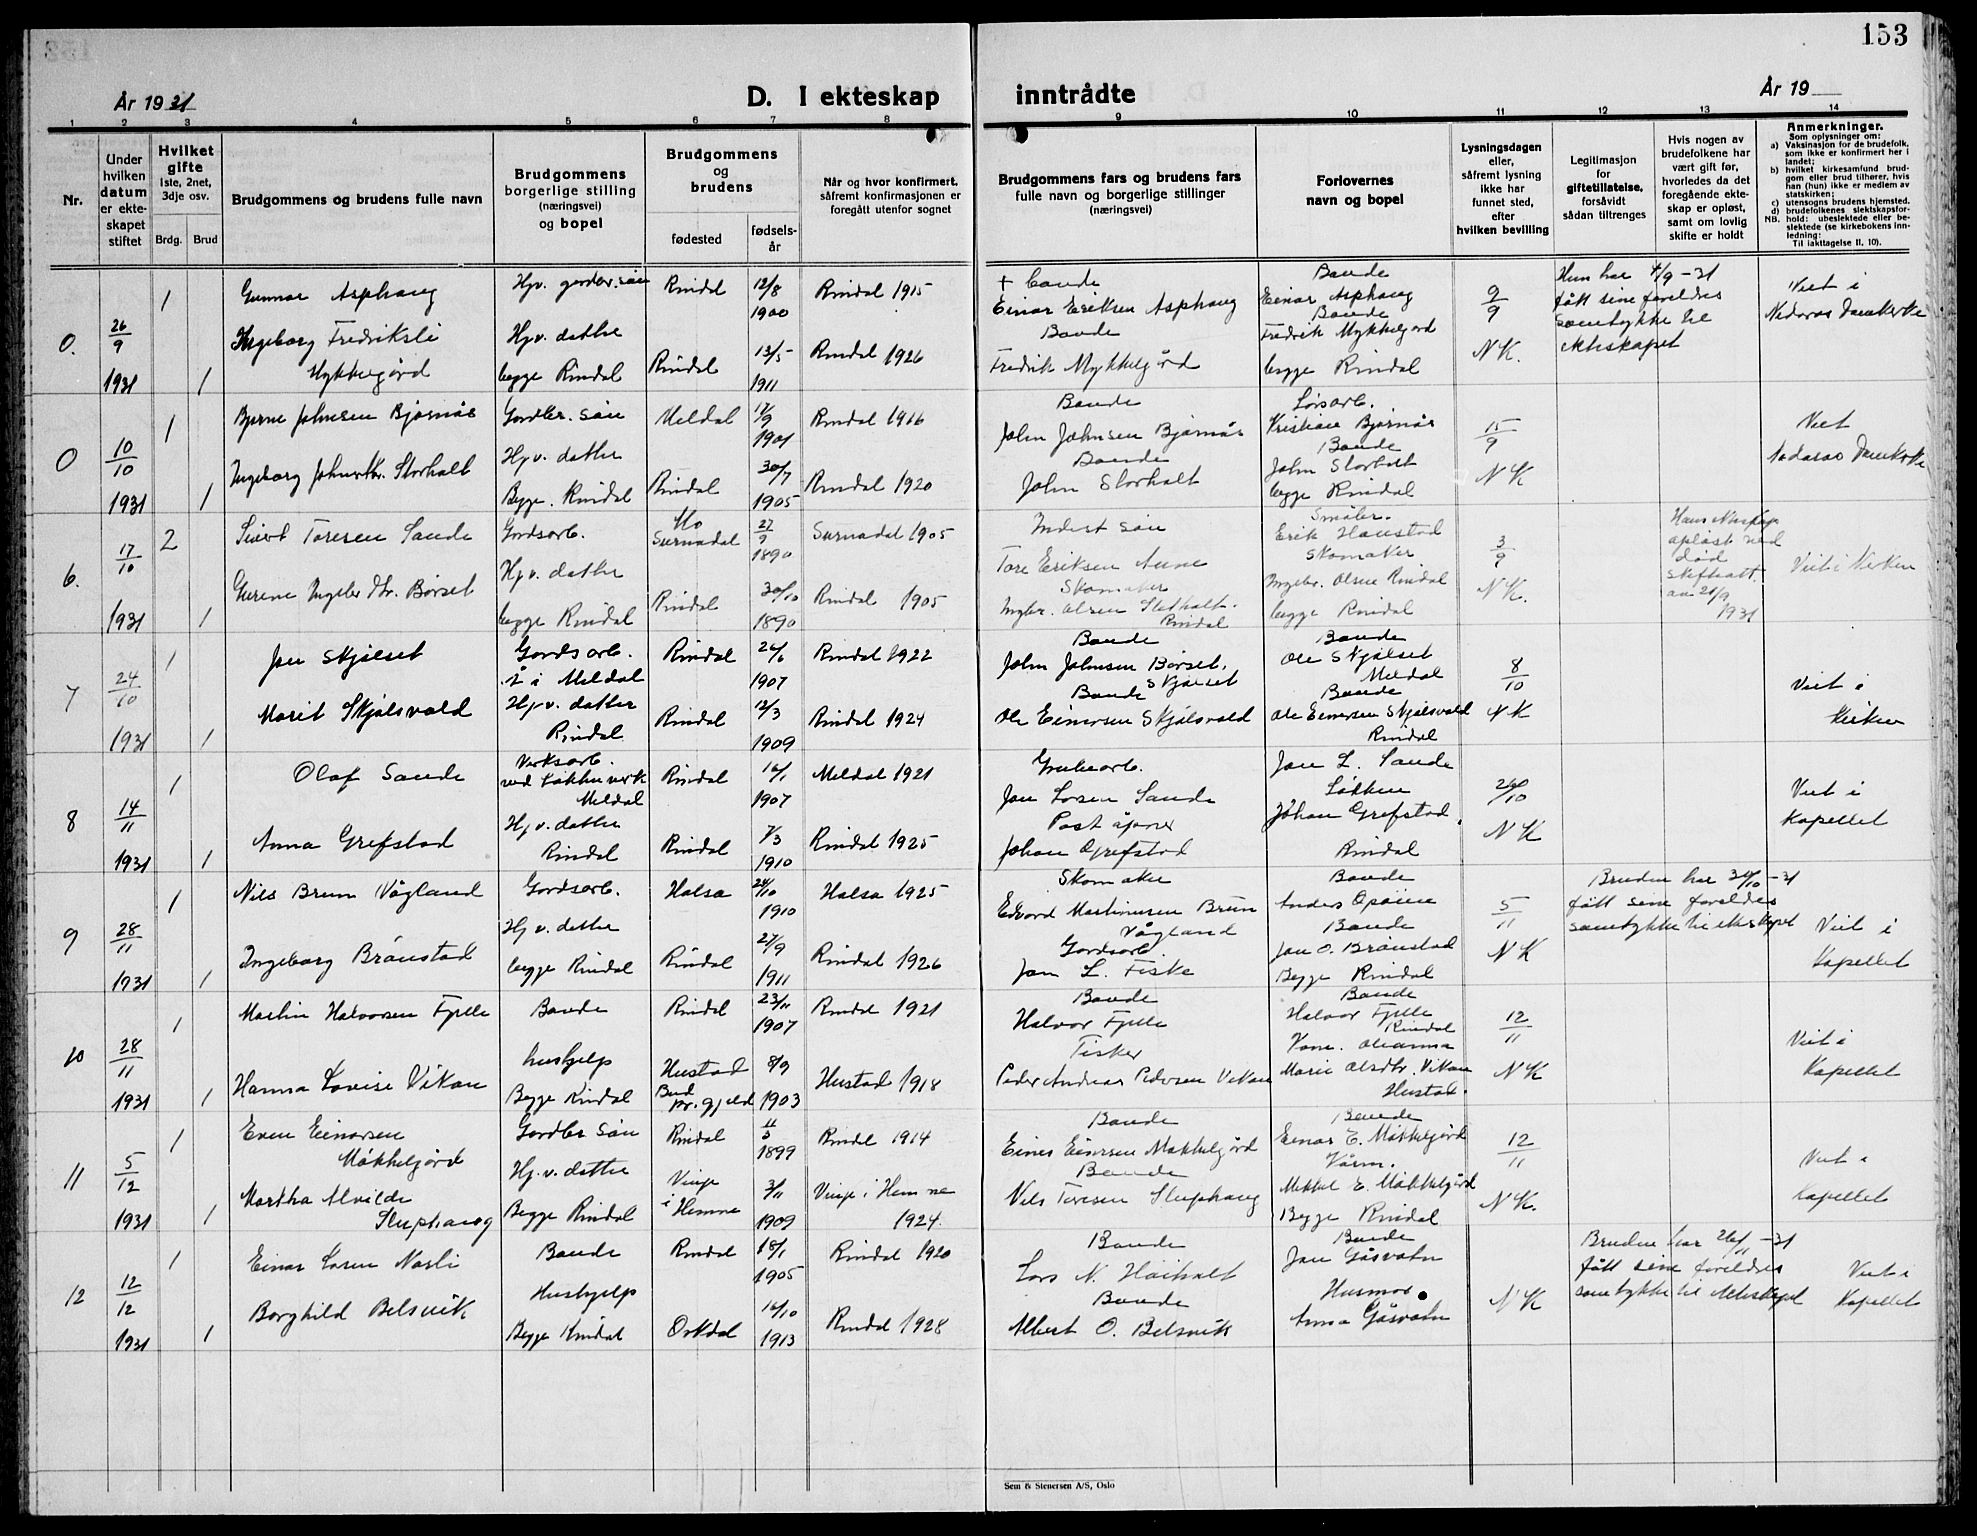 153
År 1931
D. I ekteskap inntrådte
År 19
1 2 3 4 5 6 7 8 9 10 11 12 13 14
Nr.
Under hvilken datum er ekteskapet stiftet
Hvilket gifte
1ste, 2net, 3dje osv.
Brdg. Brud
Brudgommens og brudens fulle navn
Brudgommens borgerlige stilling (næringsvei) og bopel
Brudgommens og brudens
fødested
fødselsår
Når og hvor konfirmert, såfremt konfirmasjonen er foregått utenfor sognet
Brudgommens fars og brudens fars fulle navn og borgerlige stillinger (næringsvei)
Forlovernes navn og bopel
Lysningsdagen eller, såfremt lysning ikke har funnet sted, efter hvilken bevilling
Legitimasjon for giftetillatelse, forsåvidt sådan tiltrenges
Hvis nogen av brudefolkene har vært gift før, hvorledes da det foregående ekteskap er opløst, samt om lovlig skifte er holdt
Anmerkninger.
Som oplysninger om:
a) Vaksinasjon for de brudefolk, som ikke er konfirmert her i landet;
b) hvilket kirkesamfund brudgom eller brud tilhører, hvis han (hun) ikke er medlem av statskirken;
c) utensogns brudens hjemsted.
d) brudefolkenes slektskapsforhold: ubeslektede eller beslektede (se kirkebokens innledning:
NB. Til iakttagelse II, 10).
0. 26/9 1931
1 Gunnar Asphaug Rindal 12/8 1900 Rindal 1915
+ Bonde
Einar Eriksen Asphaug
Bonde
Einar Asphaug
9/9 NK.
Hun har 4/9-31 fått sine foreldres samtykke til ekteskapet
Viet i Nidaros Domkirke
1 Ingeborg Fredriksli Mykkelgård Hjv. datter begge Rindal Rindal 13/5 1911 Rindal 1926
Bonde
Fredrik Mykkelgård
Bonde
Fredrik Mykkelgård
begge Rindal
0 10/10 1931
1 Bjarne Johnsen Bjørnås Gardbr. søn Meldal 17/9 1901 Rindal 1916
Bonde
John Johnsen Bjørnås
Kristian Bjørnås
15/9 NK
Viet Nidaros Domkirke
1 Ingeborg Johnsdtr. Storholt Hjv. datter Begge Rindal Rindal 30/7 1905 Rindal 1920
Bonde
John Storholt
Bonde
John Storholt
begge Rindal
6. 17/10 1931
2 Sivert Toresen Sande Gardsarb. Mo Surnadal 27/9 1890 Surnadal 1905
Inderst søn
Tore Eriksen Aune
Småbr.
Erik Haustad
3/9 NK.
Hans ekteskap opløst ved død
Skifteatt. av 21/9 1931
Viet i Kirken
1 Gurine Ingebr.dtr. Børset Hjv. datter begge Rindal Rindal 30/10 1890 Rindal 1905
Skomaker
Ingbr. Olsen Sletholt. Rindal
Skomaker
Ingebr. Olsen Rindal
begge Rindal
7 24/10 1931
1 Jon Skjølset Gardsarb. Meldal Rindal 26/6 1907 Rindal 1922
Bonde
John Johnsen Børset. Skjølset
Bonde
Ole Skjølset Meldal
8/10 NK
Viet i Kirken
1 Marit Skjølsvold Hjv. datter Rindal Rindal 12/3 1909 Rindal 1924
Bonde
Ole Einarsen Skjølsvold
Bonde
Ole Einarsen Skjølsvold Rindal
8 14/11 1931
1 Olaf Sande Verksarb. ved Løkken verk Meldal Rindal 16/1 1907 Meldal 1921
Grubearb.
Jon Larsen Sande
Jon L. Sande Løkken
26/10 NK
Viet i Kapellet
1 Anna Grefstad Hjv. datter Rindal Rindal 7/3 1910 Rindal 1925
Poståpner
Johan Grefstad
Johan Grefstad Rindal
9 28/11 1931
1 Nils Brun Vågland Gardsarb. Halsa 24/10 1910 Halsa 1925
Skomaker
Edvard Martinusen Brun Vågland
Bonde
Anders
5/11 NK
Bruden har 30/10-31 fått sine foreldres samtykke til ekteskapet
Viet i Kapellet
1 Ingeborg Brønstad Hjv. datter begge Rindal Rindal 27/9 1911 Rindal 1926
Gardsarb.
Jon L. Fiske
Bonde
Jon O. Brønstad
Begge Rindal
10 28/11 1931
1 Martin Halvorsen Fjelle Bonde Rindal 23/11 1907 Rindal 1921
Bonde
Halvor Fjelle
Bonde
Halvor Fjelle Rindal
12/11 NK
Viet i Kapellet
1 Hanna Lovise Vikan hushjelp Begge Rindal Hustad Bud pr.gjeld 8/9 1903 Hustad 1918
Fisker
Peder Andreas Pedersen Vikan
Marie Olsdtr. Vikan Hustad.
11 5/12 1931
1 Even Einarsen Møkkelgård Gardbr søn Rindal 1899 Rindal 1914
Bonde
Einar Einarsen Møkkelgård
Bonde
Einar E. Møkkelgård
12/11 NK.
Viet i Kapellet
1 Martha Alvilde Sluphaug Hj.v. datter Begge Rindal Vinje i Hemne 3/11 1909 Vinje i Hemne 1924.
Bonde
Nils Toresen Sluphaug
Mikkel E. Møkkelgård
Begge Rindal
12 12/12 1931
1 Einar Larsen Nasli Bonde Rindal 18/1 1905 Rindal 1920
Bonde
Lars N. Høiholt
Bonde
Jon Gåsvatn
NK
Bruden har 26/11-31 fått sine foreldres samtykke til ekteskapet
Viet i Kapellet
1 Borghild Belsvik Hushjelp Begge Rindal Orkdal 16/10 1913 Rindal 1928
Bonde
Albert O. Belsvik
Husmor
Anna Gåsvatn
Sem & Stenersen A/S, Oslo